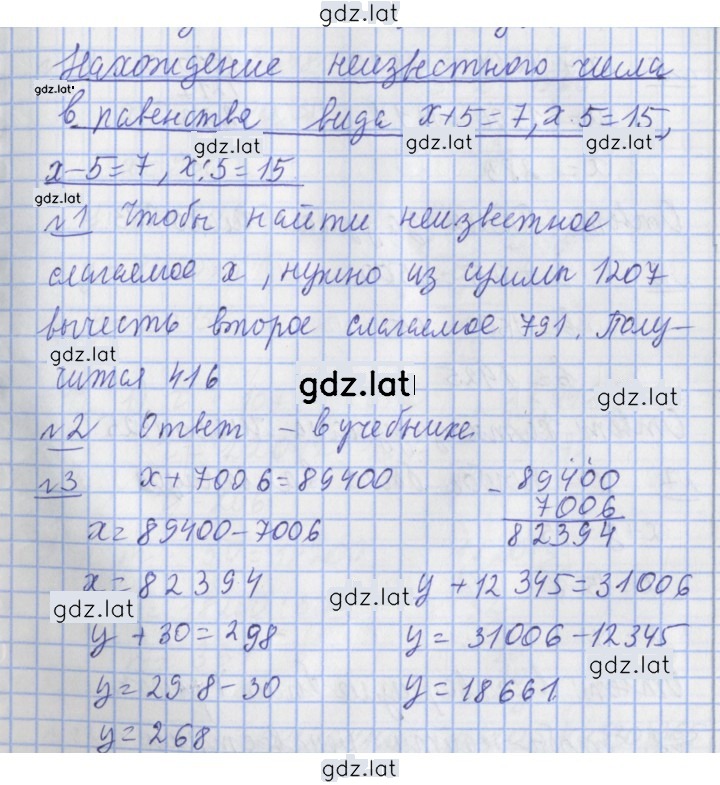 gdz.lat
Нахождение неизвестного числа
gdz.lat
в равенства вида x+5=7, x·5=15,
gdz.lat gdz.lat
x-5=7, x:5=15
gdz.lat
№1 Чтобы найти неизвестное
слагаемое x, нужно из суммы 1207
вычесть второе слагаемое 791. Полу-
gdz.lat
чится 416
gdz.lat gdz.lat
№2 Ответ - в учебнике.
№3 x+7006=89400 - 89400
7006
x=89400-7006 82394
x=82394 y+12345=31006
gdz.lat gdz.lat
y+30=298 y=31006-12345
gdz.lat
y=298-30 y=18661
y=268
gdz.lat